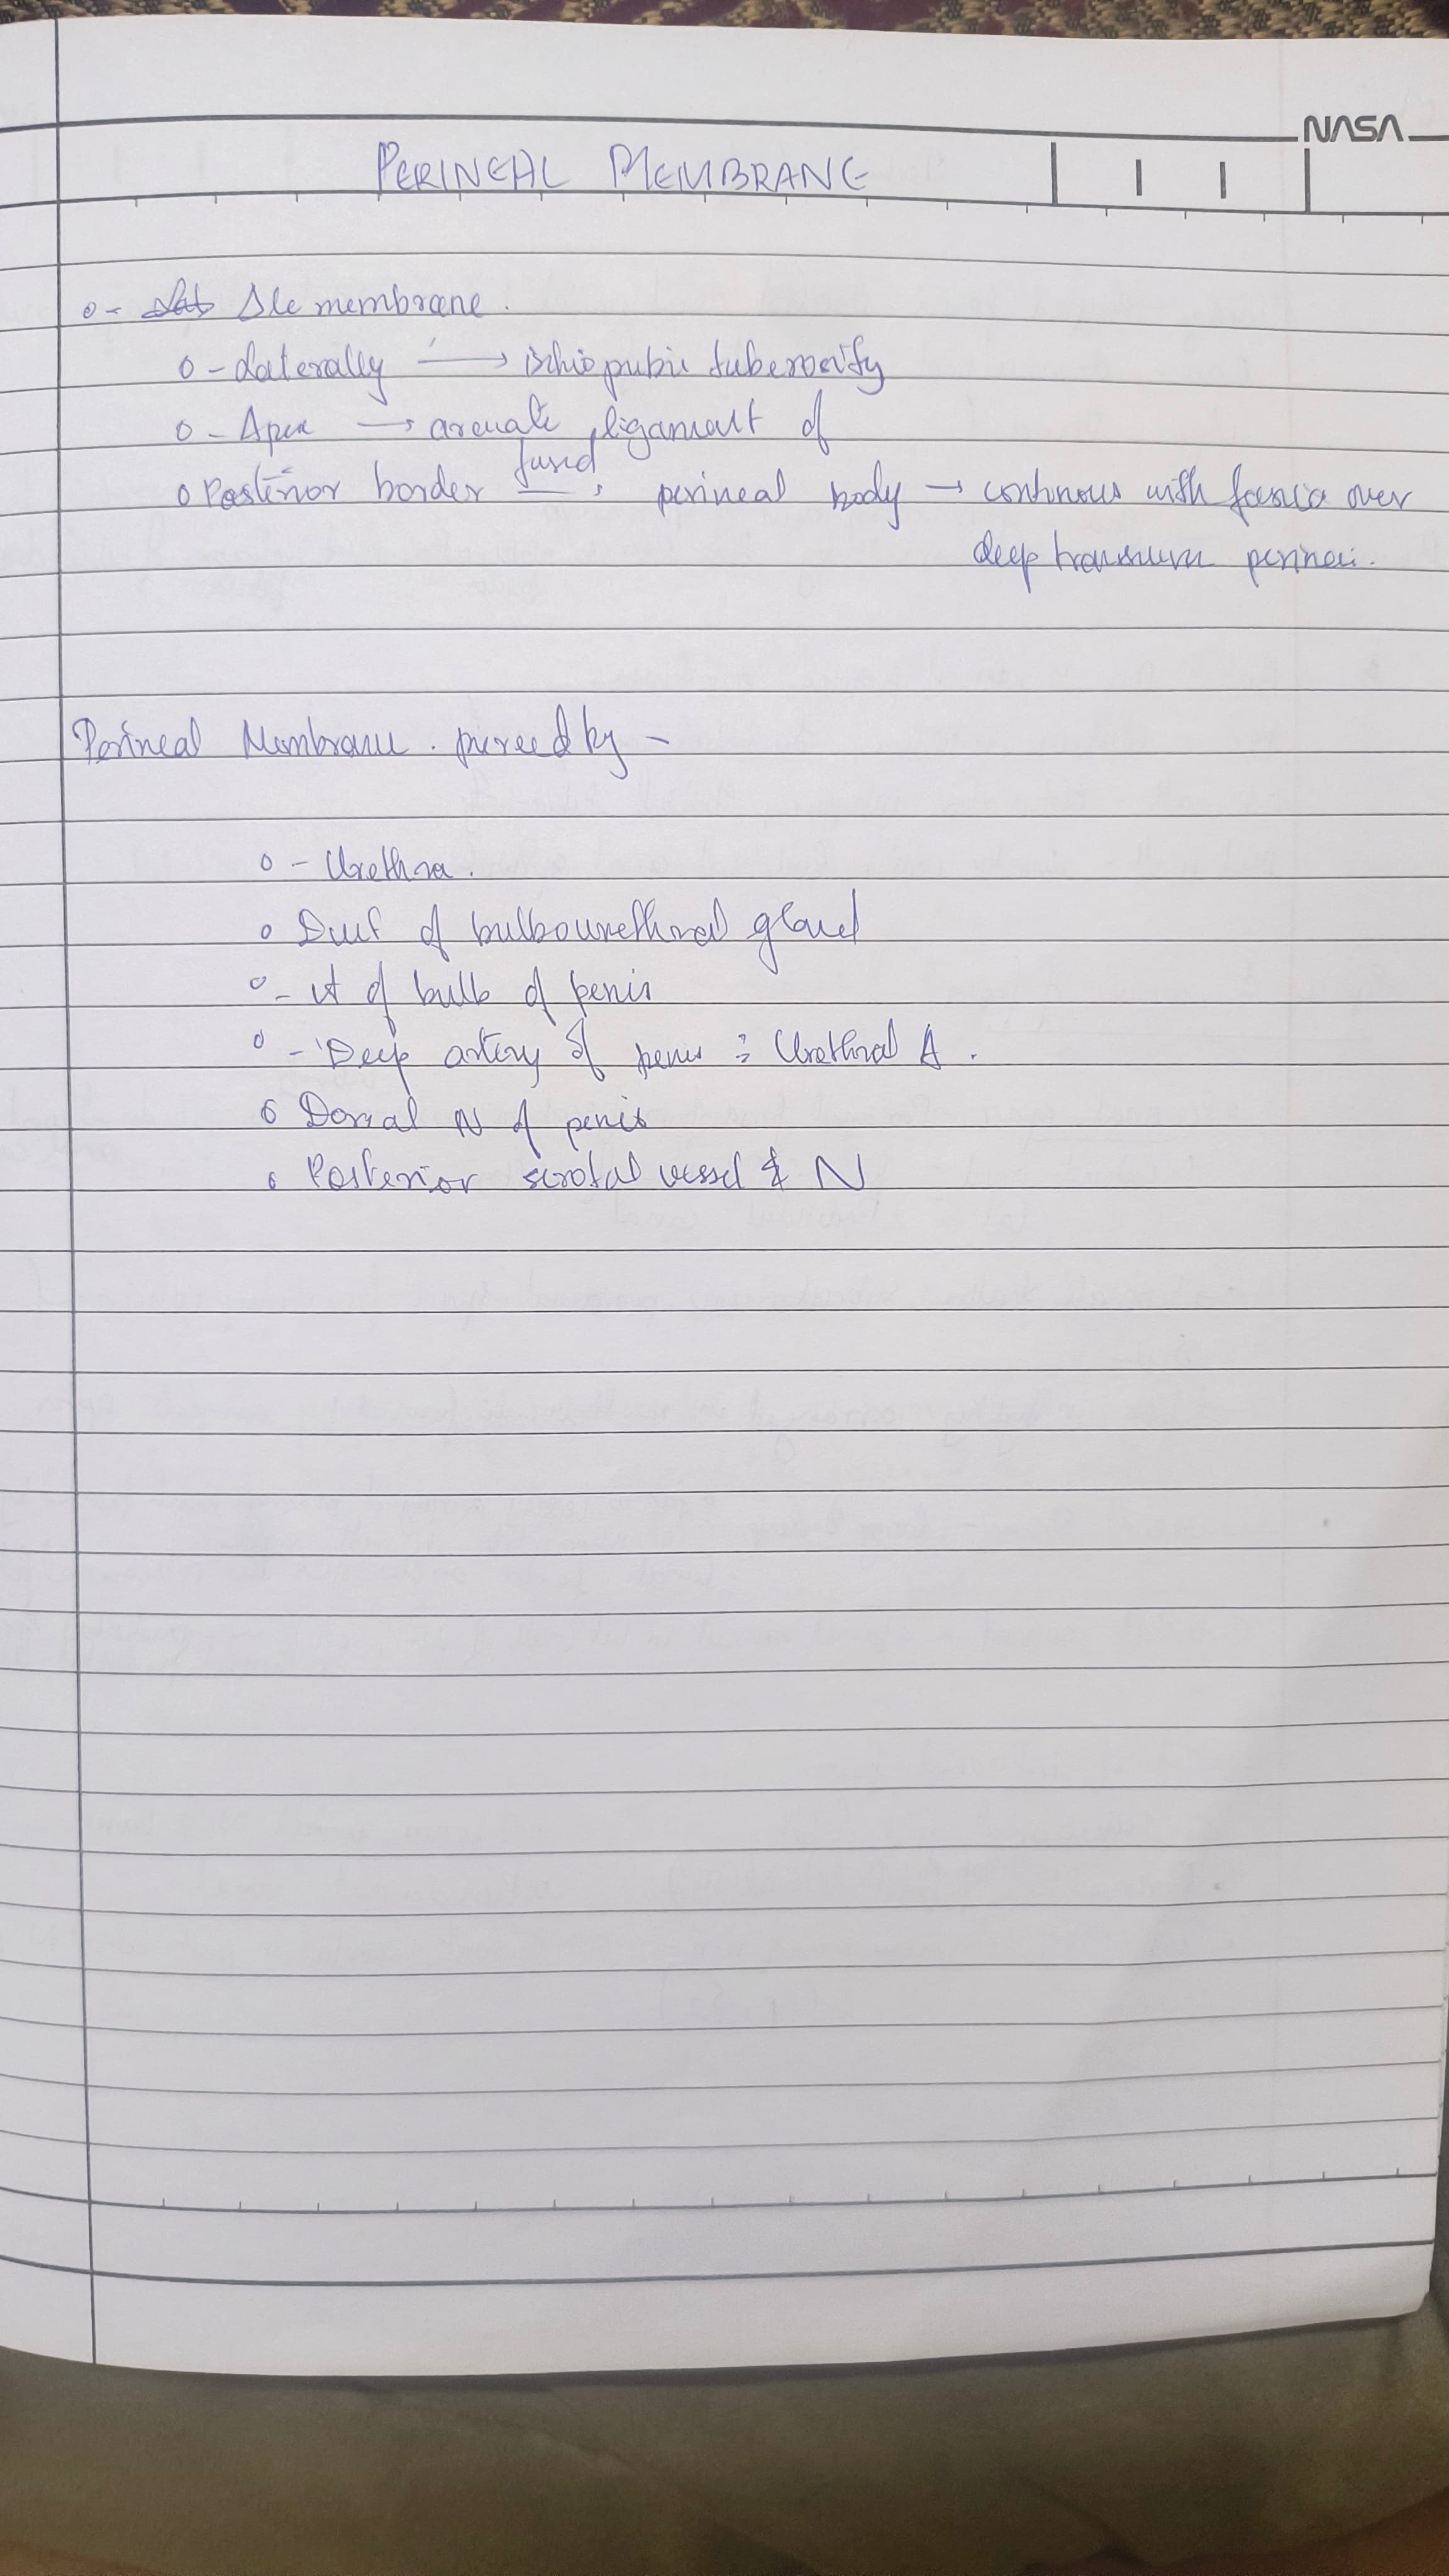 NASA
PERINEAL MEMBRANE
o- Δle membrane.
o- Laterally → ischiopubic tuberosity
o- Apex → arcuate ligament of
fused
o Posterior border → perineal body → continous with fascia over
deep transversus perinei.
Perineal Membrane. pierced by -
o - Urethra.
o Duct of bulbourethral gland
o - A of bulb of penis
o - Deep artery of penis & Urethral A.
o Dorsal N of penis
o Posterior scrotal vessel & N